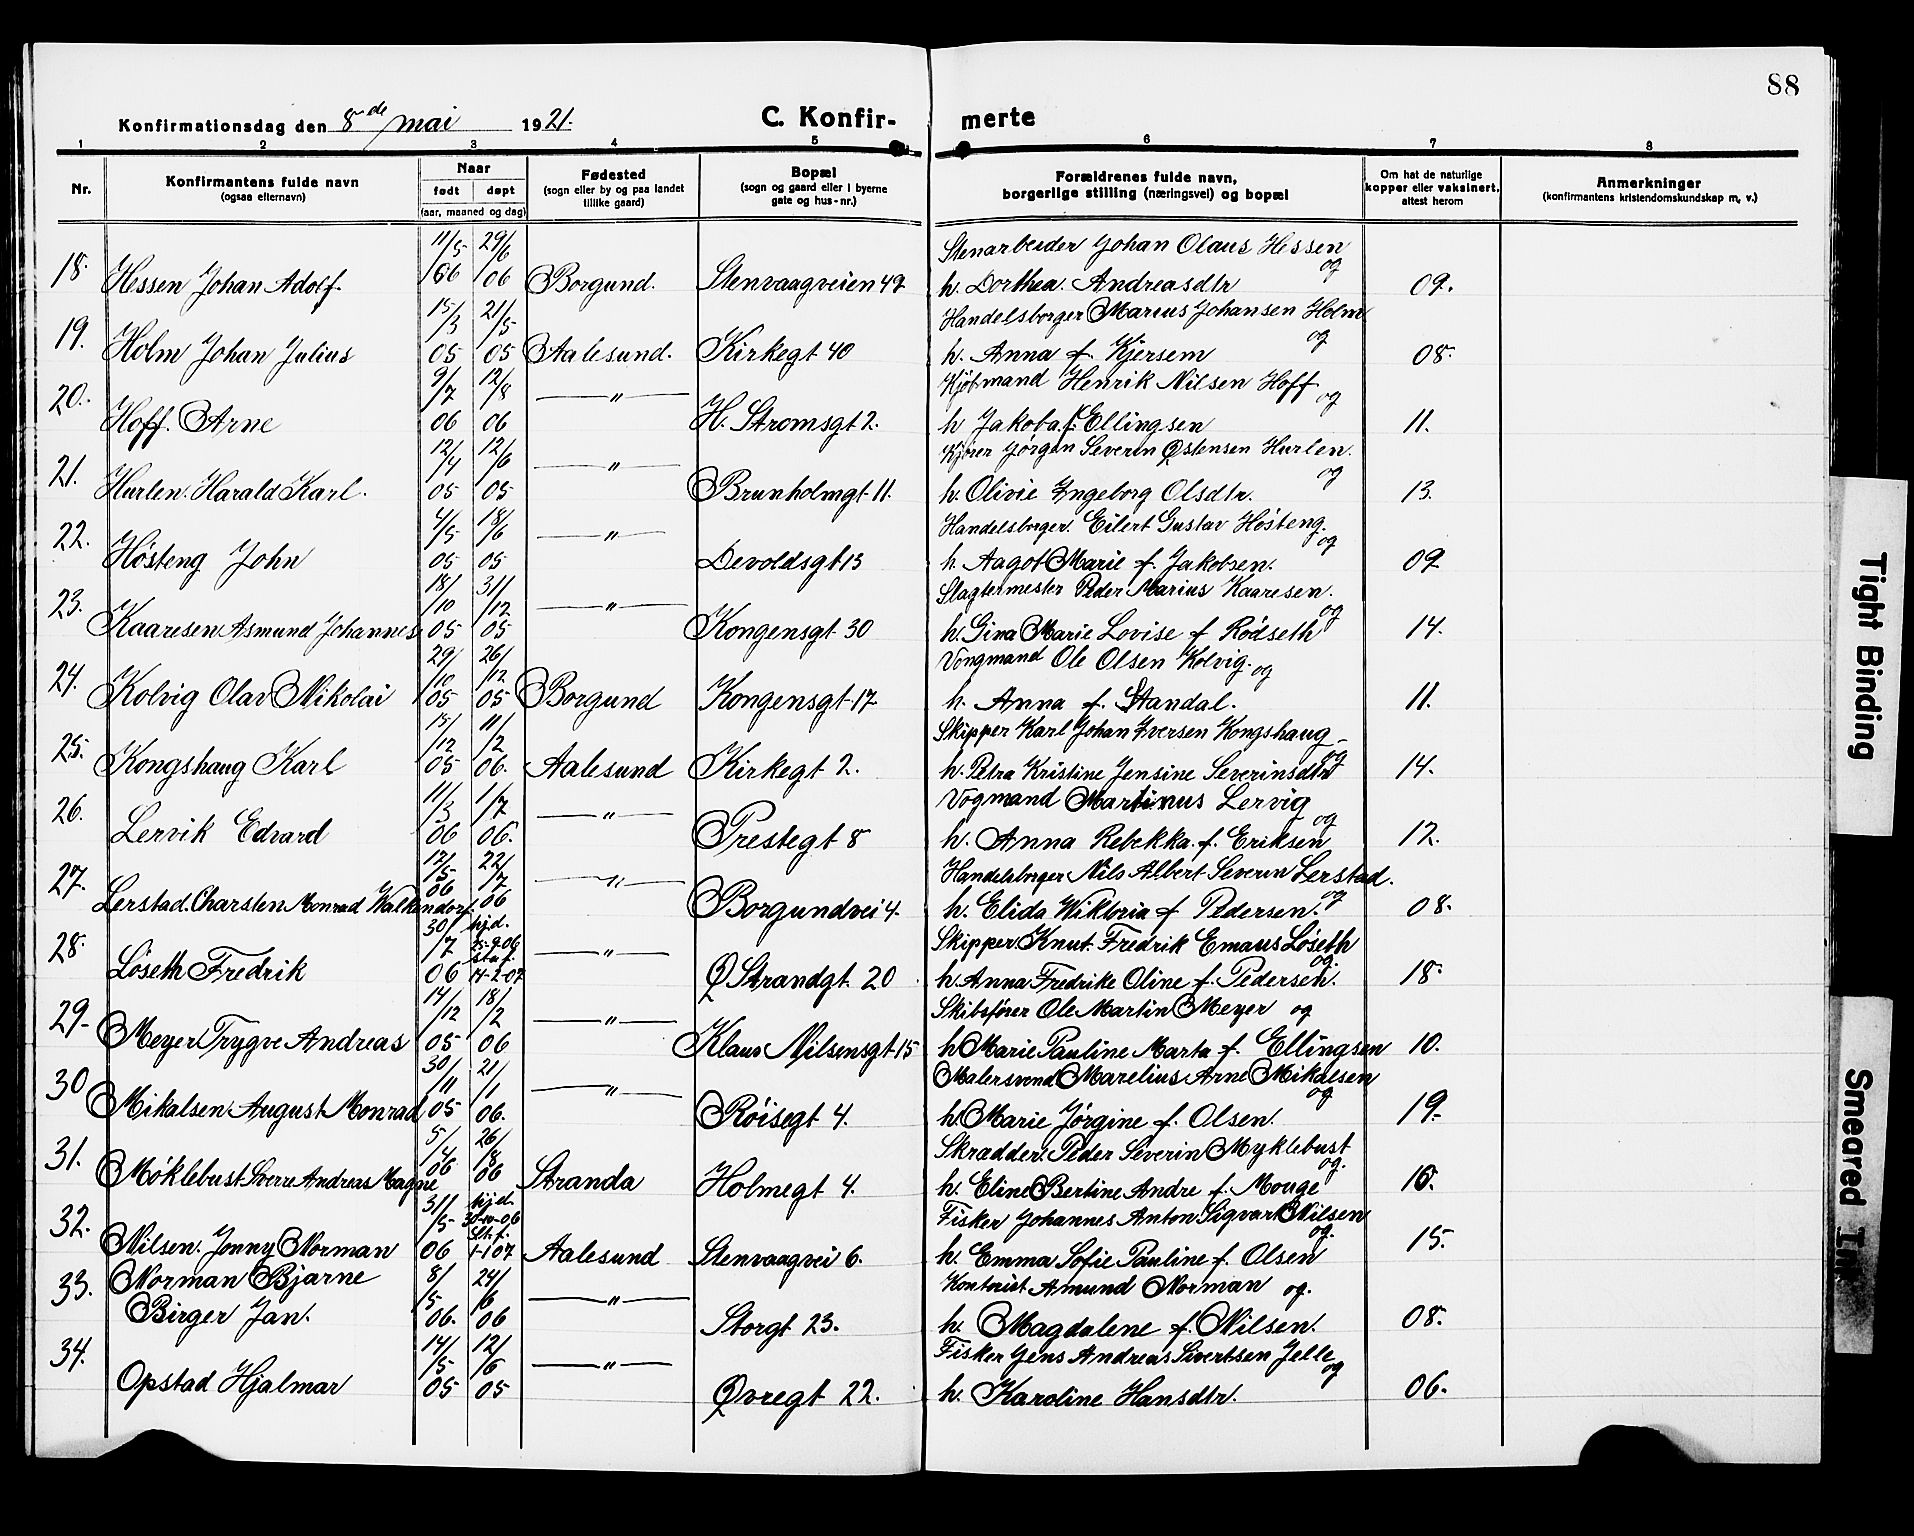 88
Konfirmationsdag den 8de mai 1921. C. Konfir- merte
1 2 3 4 5 6 7 8
Nr. Konfirmantens fulde navn (ogsaa efternavn) Naar født døpt (aar, maaned og dag) Fødested (sogn eller by og paa landet tillike gaard) Bopæl (sogn og gaard eller i byerne gate og hus-nr.) Forældrenes fulde navn, borgerlige stilling (næringsvei) og bopæl Om hat de naturlige kopper eller vaksinert, attest herom Anmerkninger (konfirmantens kristendomskundskap m. v.)
11/5 29/6 Stenarbeider Johan Olaus Hessen og
18. Hessen Johan Adolf. 06 06 Borgund. Stenvaagveien 49 h. Dorthea. Andreasdtr 09.
15/3 21/5 Handelsborger Marius Johansen Holm og
19. Holm Johan Julius 05 05 Aalesund. Kirkegt 40 h. Anna f. Kjersem 08.
9/7 12/8 Kjøbmand Henrik Nilsen Hoff og
20. Hoff. Arne 06 06 —"— H. Stromsgt 2. h Jakoba. f. Ellingsen 11.
12/4 12/6 Kjører Jørgen Severin Østensen Hurlen. og
21. Hurlen. Harald Karl. 05 05 —"— Brunholmgt 11. h. Olivie Ingeborg Olsdtr. 13.
4/5 18/6 Handelsborger. Eilert Gustav Høsteng. og
22. Høsteng John 05 05 —"— Devoldsgt 13 h. Aagot Marie f. Jakobsen. 09
18/10 31/12 Slagtermester Peder Marius Kaaresen. og
23. Kaaresen Asmund Johannes 05 05 —"— Kongensgt 30 h. Gina Marie Lovise f Rødseth 14.
29/10 26/12 Vongmand Ole Olsen Kolvig. og
24. Kolvig Olav Nikolai 05 05 Borgund Kongensgt 17 h. Anna f. Standal. 11.
15/12 11/2 Skipper Karl Johan Iversen Kongshaug og
25. Kongshaug Karl 05 06. Aalesund Kirkegt 2. h. Petra Kristine Jensine Severinsdtr 14.
11/3 1/7 Vogmand Martinus Lervig og
26. Lervik Edvard 06 06. —"— Prestegt 8 h. Anna Rebekka. f. Eriksen 12.
17/5 22/7 Handelsborger Nils Albert Severin Lerstad. og
27. Lerstad. Charsten Monrad Walkendorf 06 06 —"— Borgundvei 4. h. Elida Wiktoria f Pedersen. 08.
30/7 hjd. 25-9-06 Skipper Knut Fredrik Emaus Løseth og.
28. Løseth Fredrik 06 staf. 14-2-07 —"— Ø Strandgt 20 h. Anna Fredrike Oline f. Pedersen. 18.
14/12 18/2 Skibsfører Ole Martin Meyer og
29. Meyer Trygve Andreas 05 06 —"— Klaus Nilsensgt 15 h Marie Pauline Marta f. Ellingsen 10.
30/11 21/1 Malersvend Marelius Arne Mikalsen og
30 Mikalsen August Monrad 05 06. —"— Røisegt 4. h. Marie Jørgine f. Olsen. 19.
5/4 26/8 Skrædder. Peder Severin Myklebust og.
31. Møklebust Sverre Andreas Magne 06 06 Stranda Holmegt 4. h. Eline Bertine Andre f. Mouge 10.
31/5 hjd. 30-10-06 Fisker Johannes Anton Sigvart Nilsen og.
32. Nilsen. Jonny Norman 06 St. f. 1-1 07 Aalesund Stenvaagvei 6. h. Emma Sofie Pauline f. Olsen 15.
33. Norman Bjarne 8/5 24/6 Kontorist Amund Norman og.
Birger Jan. 06. 06 —"— Storgt 23. h. Magdalene f. Nilsen. 08.
14/5 12/6 Fisker Jens Andreas Sivertsen Jelle og
34. Opstad Hjalmar 05 05 —"— Øvregt 22. h. Karoline Hansdtr. 06.
Tight Binding
Smeared Ink